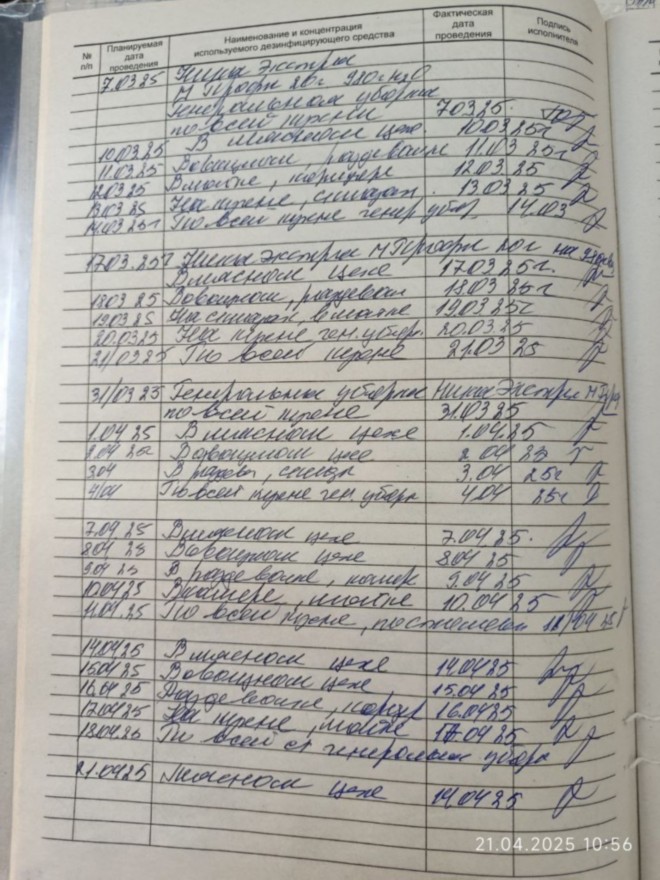 № п/п Планируемая дата проведения Наименование и концентрация используемого дезинфицирующего средства Фактическая дата проведения Подпись исполнителя
7.03.25 Ника Экстра
М Профи 20г 980г н2О
Генеральная уборка
по всей кухне 7.03.25.
10.03.25 В мясном цехе. 10.03.25г
11.03.25 В овощном, раздевалке 11.03.25г
12.03.25 В мойке, коридоре 12.03.25
13.03.25 На кухне, складах. 13.03.25
14.03.25г По всей кухне генер убор 14.03
17.03.25г Ника Экстра М Профи 20г на 980
В мясном цехе 17.03.25г.
18.03.25 В овощном, раздевал 18.03.25г
19.03.25 На складах в мойке 19.03.25г
20.03.25 На кухне, ген.убор. 20.03.25
21/03.25 По всей кухне 21.03 25
31/03 25 Генеральная уборка Ника Экстра М Проф
по всей кухне 31.03.25
1.04 25 В мясном цехе 1.04.25
2.04 25 В овощном цехе 2.04 25
3.04 В разд, склад 3.04 25г
4/04 По всей кухне ген. уборк 4.04 25г
7.04.25 В мясном цехе 7.04 25.
8.04 25 В овощном цехе 8.04 25
9.04 25 В раздевалке, 9.04 25
10.04 25 В коридоре, мойке 10.04 25
11.04.25 По всей кухне, 11/04 25
14.04.25 В мясном цехе 14.04 25
15.04.25 В овощном цехе 15.04 25
16.04.25 Раздевалке, корид 16.04 25
17.04 25 На кухне, мойке 17.04 25
18.04.25 По всей ст генеральная уборка
21.04 25 Мясном цехе 14.04 25
21.04.2025 10:56